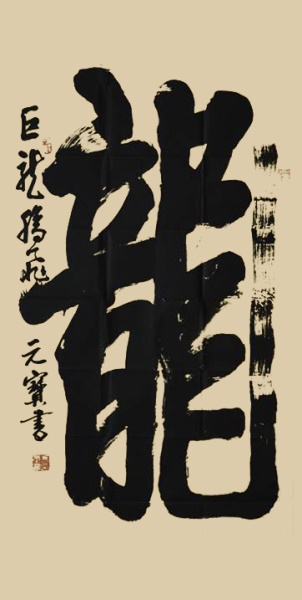 龍
巨龍騰飛
元寶書